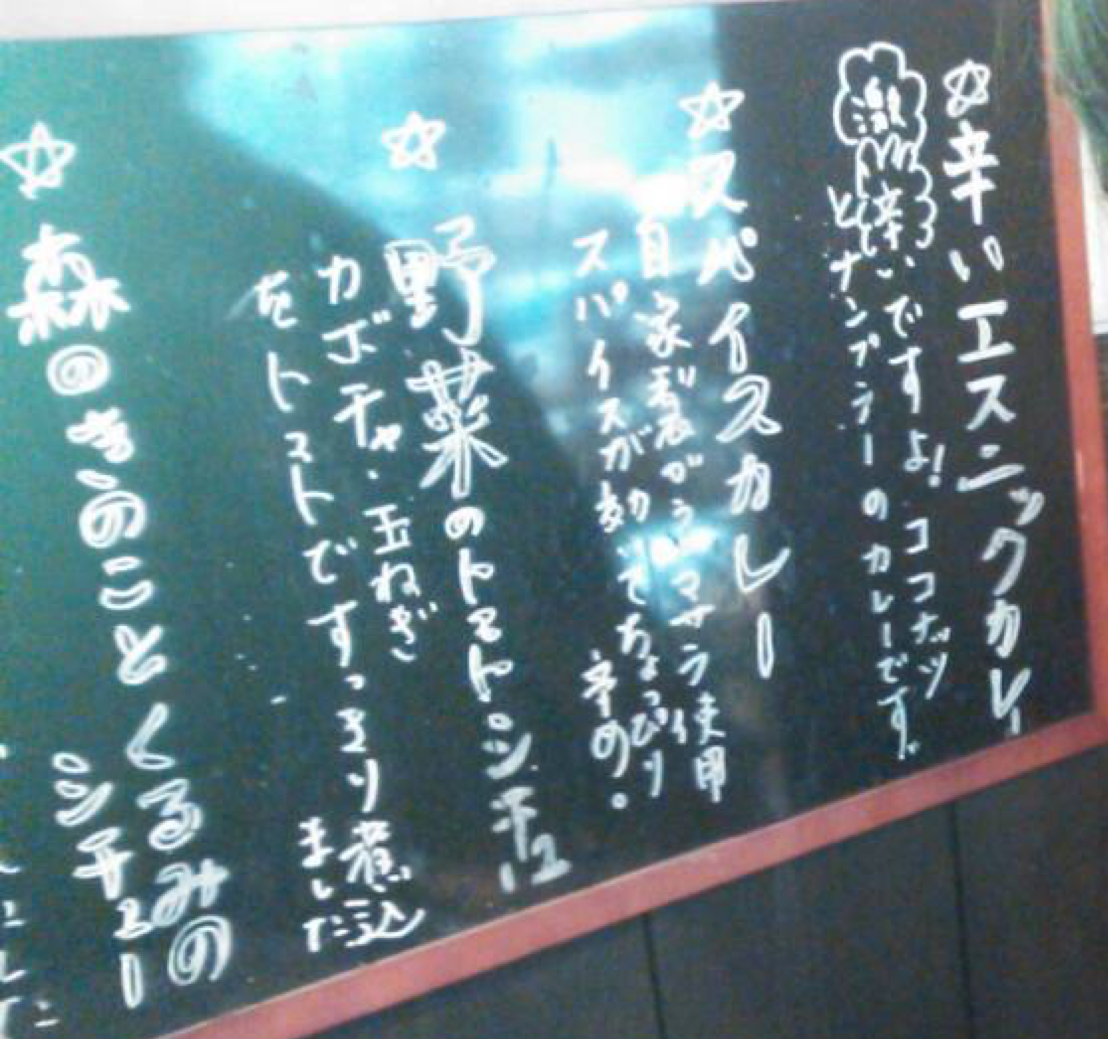 ☆辛いエスニックカレー
激辛いですよ!ココナッツ
とナンプラーのカレーです。
☆スパイスカレー
自家製がらマサラ使用
スパイスが効いてちょっぴり
辛め。
☆野菜のトマトシチュー
カボチャ・玉ねぎ
をトマトですっきり煮込
ました
☆森のきのことくるみの
シチュー